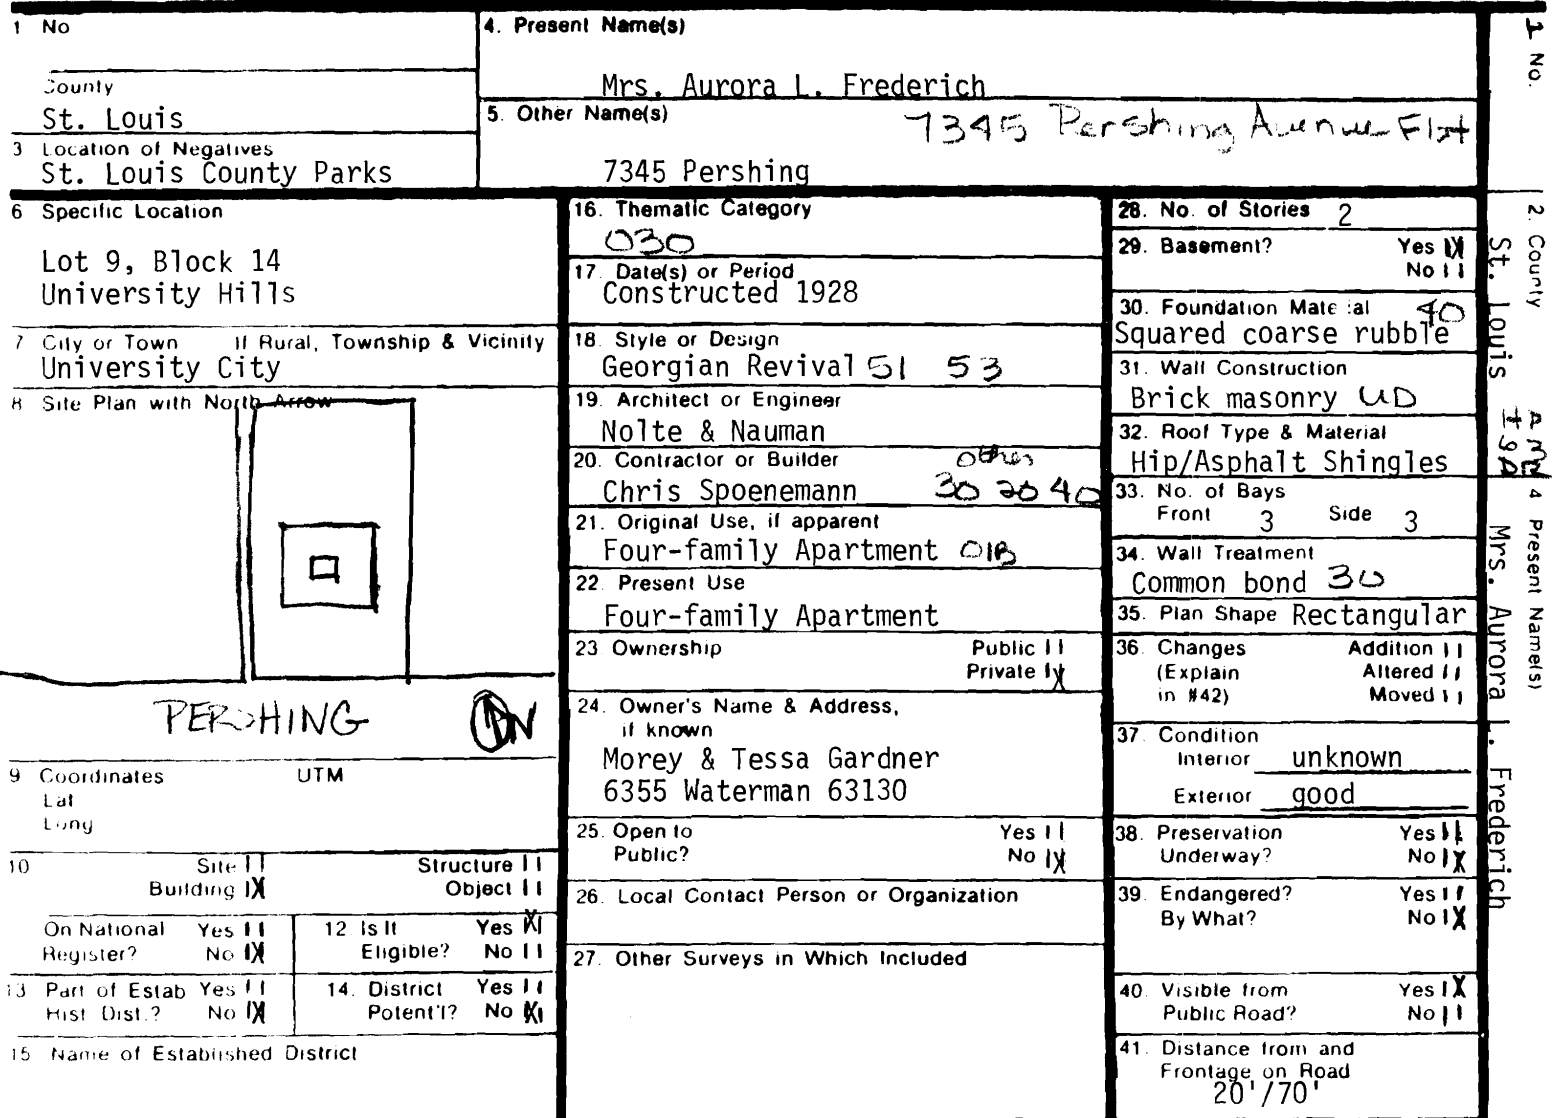 1 No
County
St. Louis
3 Location of Negatives
St. Louis County Parks
4. Present Name(s)
Mrs. Aurora L. Frederich
5. Other Name(s)
7345 Pershing Avenue Flat
7345 Pershing
6 Specific Location
Lot 9, Block 14
University Hills
7 City or Town If Rural, Township & Vicinity
University City
8 Site Plan with North Arrow
PERSHING N
9 Coordinates UTM
Lat
Long
10 Site Structure
Building X Object
On National Yes
Register? No X
12 Is It Yes X
Eligible? No
13 Part of Estab Yes
Hist Dist.? No X
14. District Yes
Potent'l? No X
15 Name of Established District
16. Thematic Category
030
17. Date(s) or Period
Constructed 1928
18. Style or Design
Georgian Revival 51 53
19. Architect or Engineer
Nolte & Nauman
20. Contractor or Builder other
Chris Spoenemann 30 20 40
21. Original Use, if apparent
Four-family Apartment 01B
22. Present Use
Four-family Apartment
23 Ownership Public
Private X
24. Owner's Name & Address,
if known
Morey & Tessa Gardner
6355 Waterman 63130
25. Open to Yes
Public? No X
26. Local Contact Person or Organization
27. Other Surveys in Which Included
28. No. of Stories 2
29. Basement? Yes X
No
30. Foundation Material 40
Squared coarse rubble
31. Wall Construction
Brick masonry UD
32. Roof Type & Material
Hip/Asphalt Shingles
33. No. of Bays
Front 3 Side 3
34. Wall Treatment
Common bond 30
35. Plan Shape Rectangular
36. Changes Addition
(Explain Altered
in #42) Moved
37. Condition
Interior unknown
Exterior good
38. Preservation Yes
Underway? No X
39. Endangered? Yes
By What? No X
40. Visible from Yes X
Public Road? No
41. Distance from and
Frontage on Road
20'/70'
1 No.
2. County
St. Louis
4 Present Name(s)
Mrs. Aurora L. Frederich